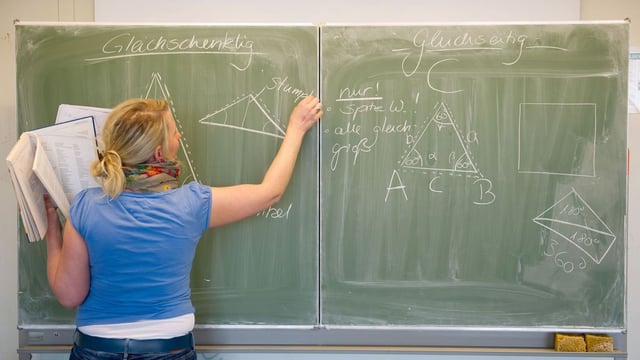 Gleichschenklig
Stumpf
Gleichseitig
nur!
· Spitze W.!
· alle gleich
groß
C
60°
γ
b
a
60°
α
β
60°
A
C
B
180°
180°
360°